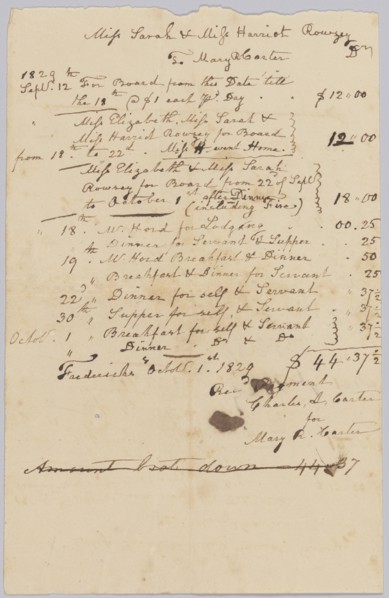 Miss Sarah & Miss Harriot Rowzey
Dr
To Mary R Carter
1829
Sept. 12th For Board from this Date till
the 18th @ $1 each pr. Day . $12.00
" Miss Elizabeth, Miss Sarah &
Miss Harriot Rowzey for Board
from 18th to 22d. Miss H. went Home. 12.00
Miss Elizabeth & Miss Sarah
Rowzey for Board from 22d of Septr
to October 1st after Dinner 18.00
(including Fires)
" 18th. Mr Hord for Lodging . 00.25
" th Dinner for Servant & Supper . 25
19. Mr Hord Breakfast & Dinner . 50
" Breakfast & Dinner for Servant . 25
22d " Dinner for self & Servant . 37½
30th " Supper for self & Servant . 37½
Octobr. 1 " Breakfast for self & Servant . 37½
" Dinner Do & Do . 37½
$44.37½
Fredericksbg Octobr. 1st. 1829
Recd Payment
Charles L. Carter
for
Mary R. Carter
Amount brot down 44.37